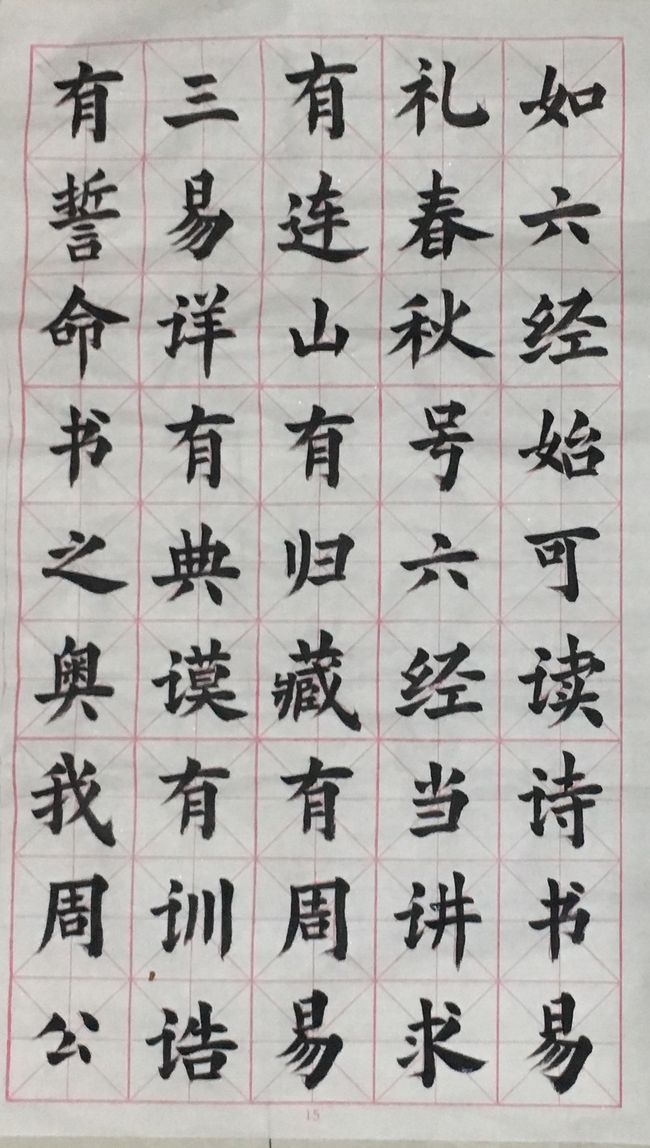 如六经始可读诗书易
礼春秋号六经当讲求
有连山有归藏有周易
三易详有典谟有训诰
有誓命书之奥我周公
15